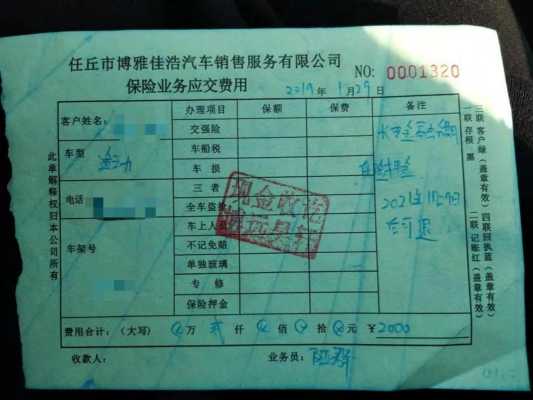 任丘市博雅佳浩汽车销售服务有限公司
保险业务应交费用
NO: 0001320
2019 年 1 月 29 日
客户姓名:
办理项目 保额 保费 备注
交强险
车船税
车型
车损
三者
电话
全车盗抢
车上人员
车架号
不记免赔
单独玻璃
专修
保险押金
现金收讫
2021年1月29日
可退
费用合计:(大写) 万 贰 仟 佰 拾 元 ¥2000
收款人:
业务员:
此单解释权归本公司所有
一联存根 黑 二联记账红(盖章有效)
三联客户绿(盖章有效) 四联回执蓝(盖章有效)